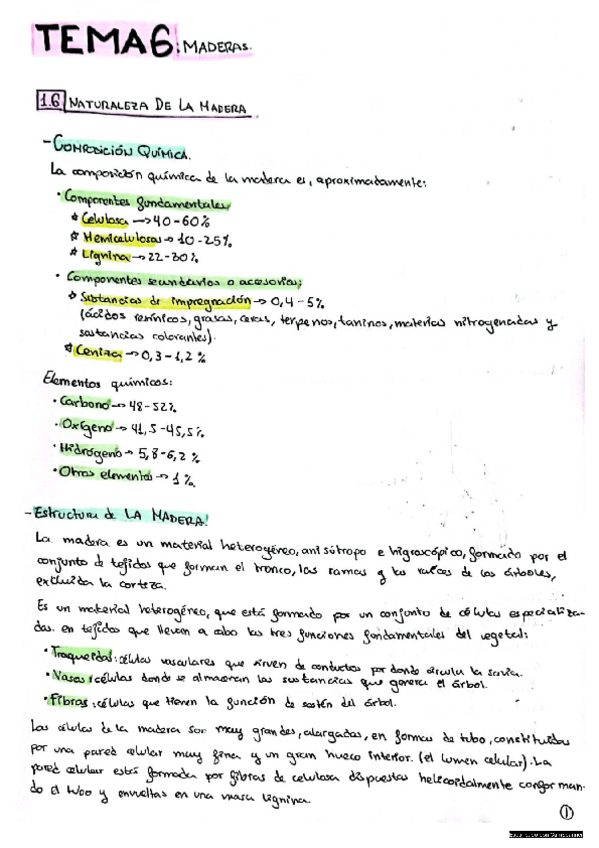 TEMA6: MADERAS.
1.6 NATURALEZA DE LA MADERA
- COMPOSICIÓN QUÍMICA.
La composición química de la madera es, aproximadamente:
· Componentes fundamentales
* Celulosa → 40-60%
* Hemicelulosas → 10-25%
* Lignina → 22-30%
· Componentes secundarios o accesorios:
* Sustancias de impregnación → 0,4-5%
(ácidos resínicos, grasas, ceras, terpenos, taninos, materias nitrogenadas y
sustancias colorantes).
* Ceniza → 0,3-1,2 %
Elementos químicos:
· Carbono → 48-52%
· Oxígeno → 41,5-45,5%
· Hidrógeno → 5,8-6,2 %
· Otros elementos → 1%.
- Estructura de LA MADERA:
La madera es un material heterogéneo, anisótropo e higroscópico, formado por el
conjunto de tejidos que forman el tronco, las ramas y las raíces de los árboles,
excluida la corteza.
Es un material heterogéneo, que está formado por un conjunto de células especializa-
das. en tejidos que llevan a cabo las tres funciones fundamentales del vegetal:
· Traqueidas: células vasculares que sirven de conductos por donde circula la savia.
· Vasos: células donde se almacenan las sustancias que genera el árbol.
· Fibras: células que tienen la función de sostén del árbol.
Las células de la madera son muy grandes, alargadas, en formas de tubo, constituidas
por una pared celular muy fina y un gran hueco interior. (el lumen celular). La
pared celular está formada por fibras de celulosa dispuestas helicoidalmente conforman-
do el tubo y envueltas en una masa lignina.
1